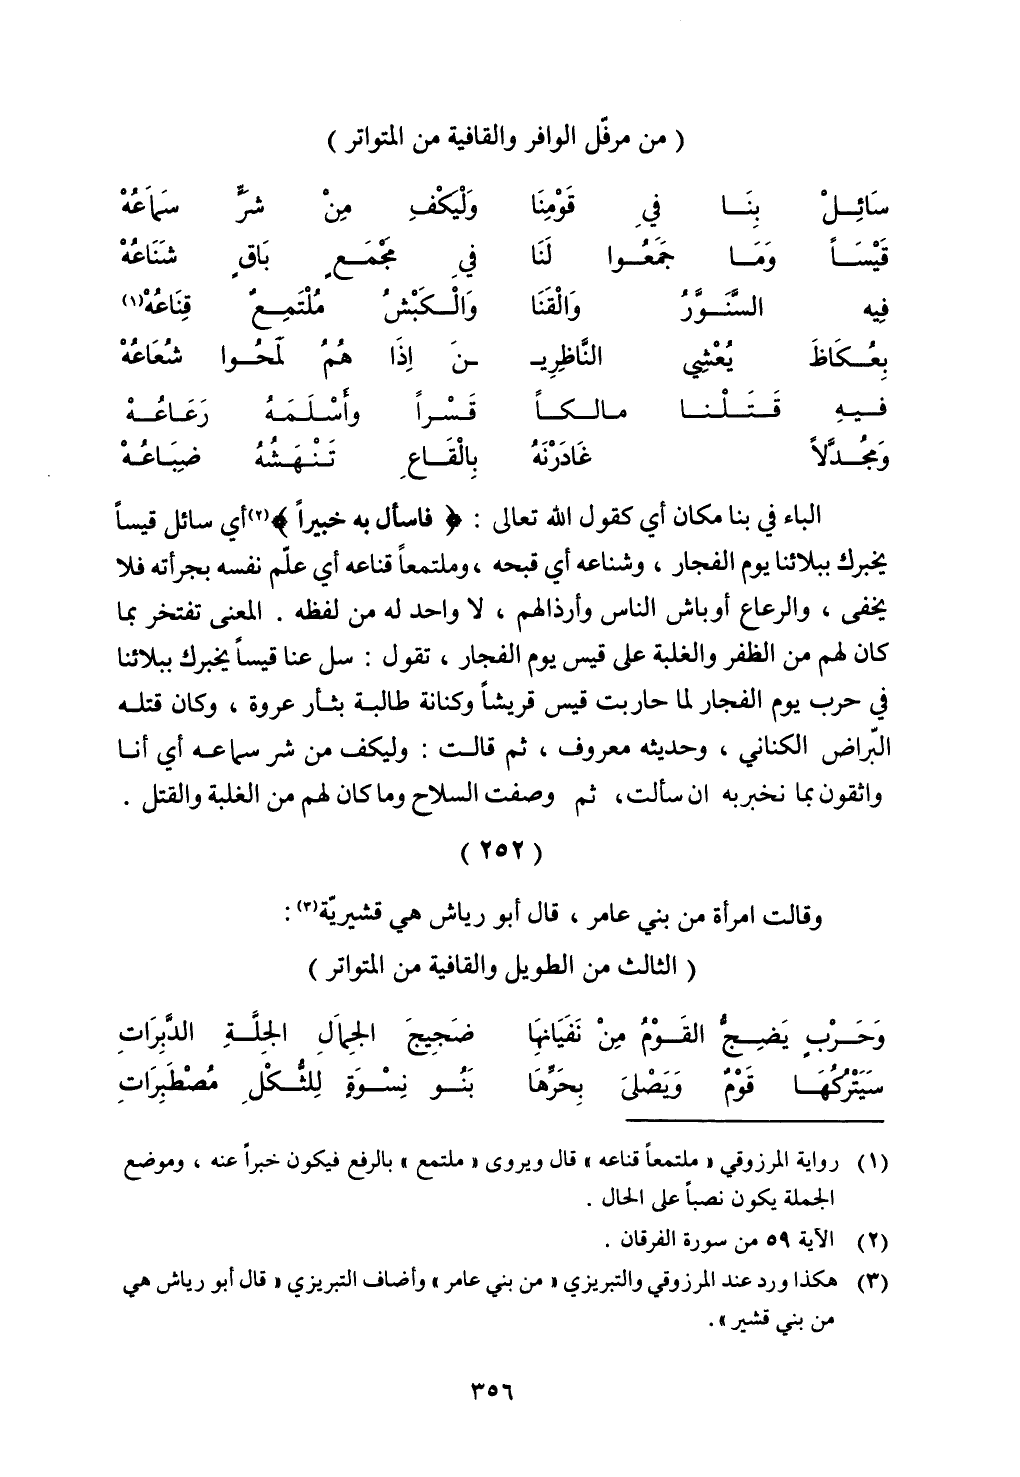 ( من مرفّل الوافر والقافية من المتواتر )
سَائِـلْ بِنَـا فِي قَوْمِنَا وَلْيَكْفِ مِنْ شَرٍّ سَمَاعُهْ
قَيْسَـاً وَمَـا جَمَعُـوا لَنَا فِي مَجْمَـعٍ بَاقٍ شَنَاعُهْ
فِيه السَّنَـوَّرُ وَالْقَنَا وَالْـكَبْشُ مُلْتَمِـعٌ قِنَاعُهْ(١)
بِعُـكَاظَ يُعْشِي النَّاظِرِيـ ـنَ إِذَا هُمُ لَمَحُـوا شُعَاعُهْ
فـيـهِ قَـتَـلْـنـا مـالـكـاً قَـسْـراً وأَسْـلَمَـهُ رَعَـاعُـهْ
وَمُجَـدَّلاً غَادَرْنَهُ بِالْقَـاعِ تَنْهَـشُهُ ضِبَـاعُـهْ
الباء في بنا مكان أي كقول الله تعالى : ﴿ فاسأل به خبيراً ﴾(٢)أي سائل قيساً
يخبرك ببلائنا يوم الفجار ، وشناعه أي قبحه ، وملتمعاً قناعه أي علّم نفسه بجرأته فلا
يخفى ، والرعاع أوباش الناس وأرذالهم ، لا واحد له من لفظه . المعنى تفتخر بما
كان لهم من الظفر والغلبة على قيس يوم الفجار ، تقول : سل عنا قيساً يخبرك ببلائنا
في حرب يوم الفجار لما حاربت قيس قريشاً وكنانة طالبة بثأر عروة ، وكان قتلـه
البّراض الكناني ، وحديثه معروف ، ثم قالت : وليكف من شر سماعـه أي أنـا
واثقون بما نخبربه ان سألت، ثم وصفت السلاح وما كان لهم من الغلبة والقتل .
( ٢٥٢ )
وقالت امرأة من بني عامر ، قال أبو رياش هي قشيريّة(٣) :
( الثالث من الطويل والقافية من المتواتر )
وَحَـرْبٍ يَضـجُّ القَـوْمُ مِنْ نَفَيَانِهَا ضَجِيجَ الجِمَالِ الجِلَّـةِ الدَّبِرَاتِ
سَيَتْرُكُهَـا قَوْمٌ وَيَصْلَى بِحَرِّهَا بَنُـو نِسْـوَةٍ لِلثُّـكْلِ مُصْطَبِرَاتِ
(١) رواية المرزوقي « ملتمعاً قناعه » قال ويروى « ملتمع » بالرفع فيكون خبراً عنه ، وموضع
الجملة يكون نصباً على الحال .
(٢) الآية ٥٩ من سورة الفرقان .
(٣) هكذا ورد عند المرزوقي والتبريزي « من بني عامر » وأضاف التبريزي « قال أبو رياش هي
من بني قشير » .
٣٥٦